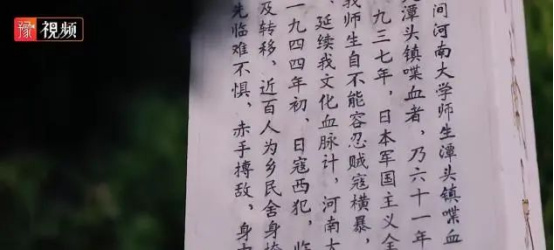 豫視频
问河南大学师生潭头镇喋血
潭头镇喋血者，乃六十一年
九三七年，日本军国主义全
我师生自不能容忍贼寇横暴，
、延续我文化血脉计，河南大
一九四四年初，日寇西犯，临
及转移，近百人为乡民舍身
先临难不惧，赤手搏敌，身